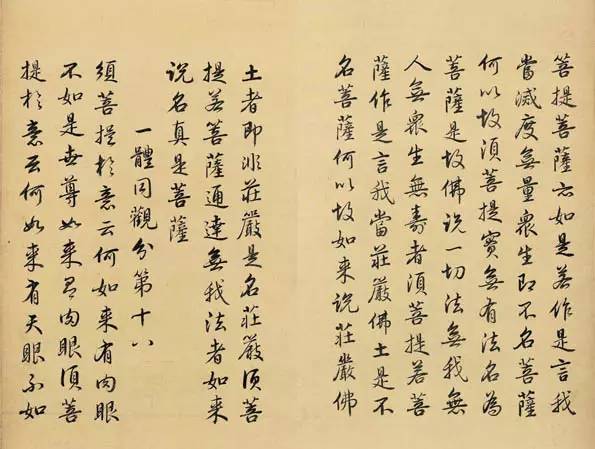 菩提菩薩亦如是若作是言我
當滅度無量衆生即不名菩薩
何以故須菩提實無有法名為
菩薩是故佛說一切法無我無
人無衆生無壽者須菩提若菩
薩作是言我當莊嚴佛土是不
名菩薩何以故如來說莊嚴佛
土者即非莊嚴是名莊嚴須菩
提若菩薩通達無我法者如來
說名真是菩薩
一體同觀分第十八
須菩提於意云何如來有肉眼
不如是世尊如來有肉眼須菩
提於意云何如來有天眼不如